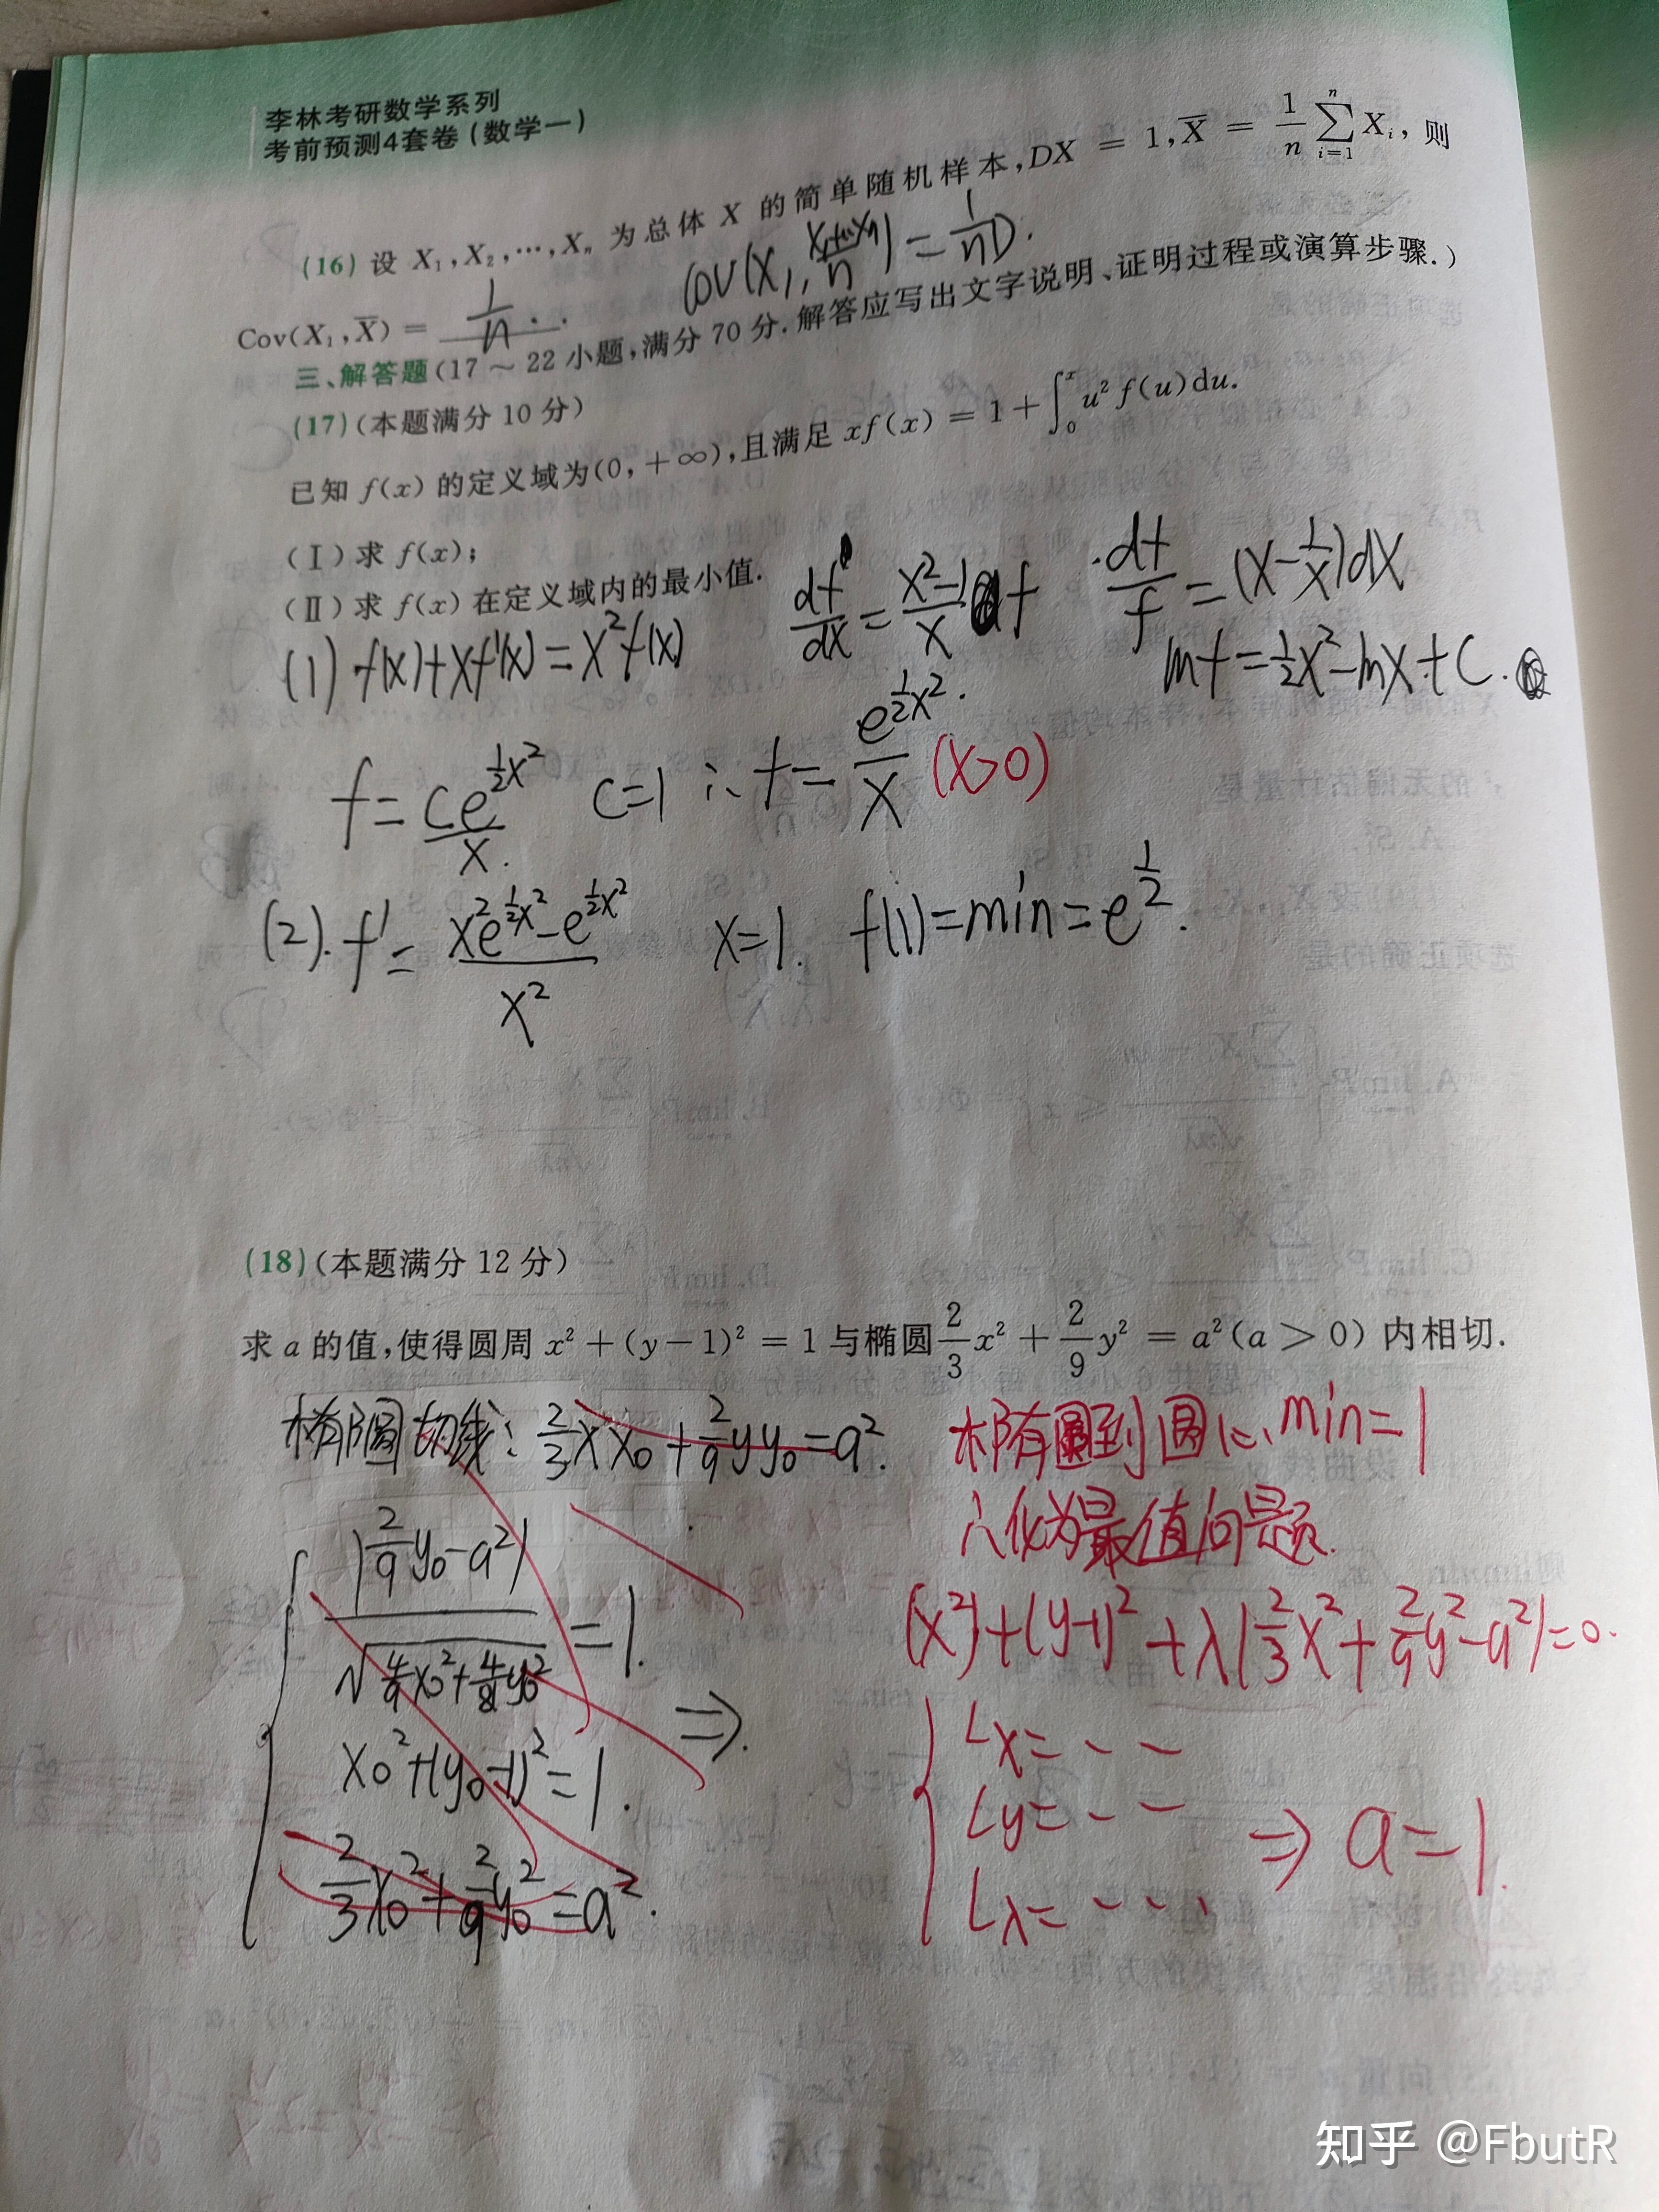 李林考研数学系列
考前预测4套卷(数学一)
(16) 设 X₁,X₂,⋯,Xₙ 为总体 X 的简单随机样本,DX = 1,X̅ = 1/n ∑ᵢ₌₁ⁿ Xᵢ, 则
Cov(X₁,X̅) = 1/n
cov(X₁, (X₁+⋯Xₙ)/n) = 1/n D.
三、解答题(17 ~ 22 小题,满分 70 分.解答应写出文字说明、证明过程或演算步骤.)
(17)(本题满分 10 分)
已知 f(x) 的定义域为(0,+∞),且满足 xf(x) = 1+∫₀ˣ u² f(u)du.
(Ⅰ)求 f(x);
(Ⅱ)求 f(x) 在定义域内的最小值.
(1) f(x)+xf'(x)=x²f(x)
df/dx = (x²-1)/x f
df/f = (x-1/x)dx
lnf=½x²-lnx+C.
f= Ce^(½x²)/x.
C=1 ∴ f= e^(½x²)/x (x>0)
(2). f'= (x²e^(½x²)-e^(½x²))/x²
x=1. f(1)=min=e^(1/2).
(18)(本题满分 12 分)
求 a 的值,使得圆周 x²+(y-1)² = 1 与椭圆 2/3 x² + 2/9 y² = a²(a > 0) 内相切.
椭圆切线: 2/3 xx₀+2/9 yy₀=a².
|2/9 y₀-a²| / √(4/9 x₀²+4/81 y₀²) =1.
x₀²+(y₀-1)²=1.
⇒.
2/3 x₀²+2/9 y₀²=a².
椭圆到圆心min=1
∴化为最值问题.
(x²)+(y-1)²+λ(2/3 x²+2/9 y²-a²)=0.
Lx= - -
Ly= - -
Lλ= - - -
⇒ a=1.
知乎 @FbutR